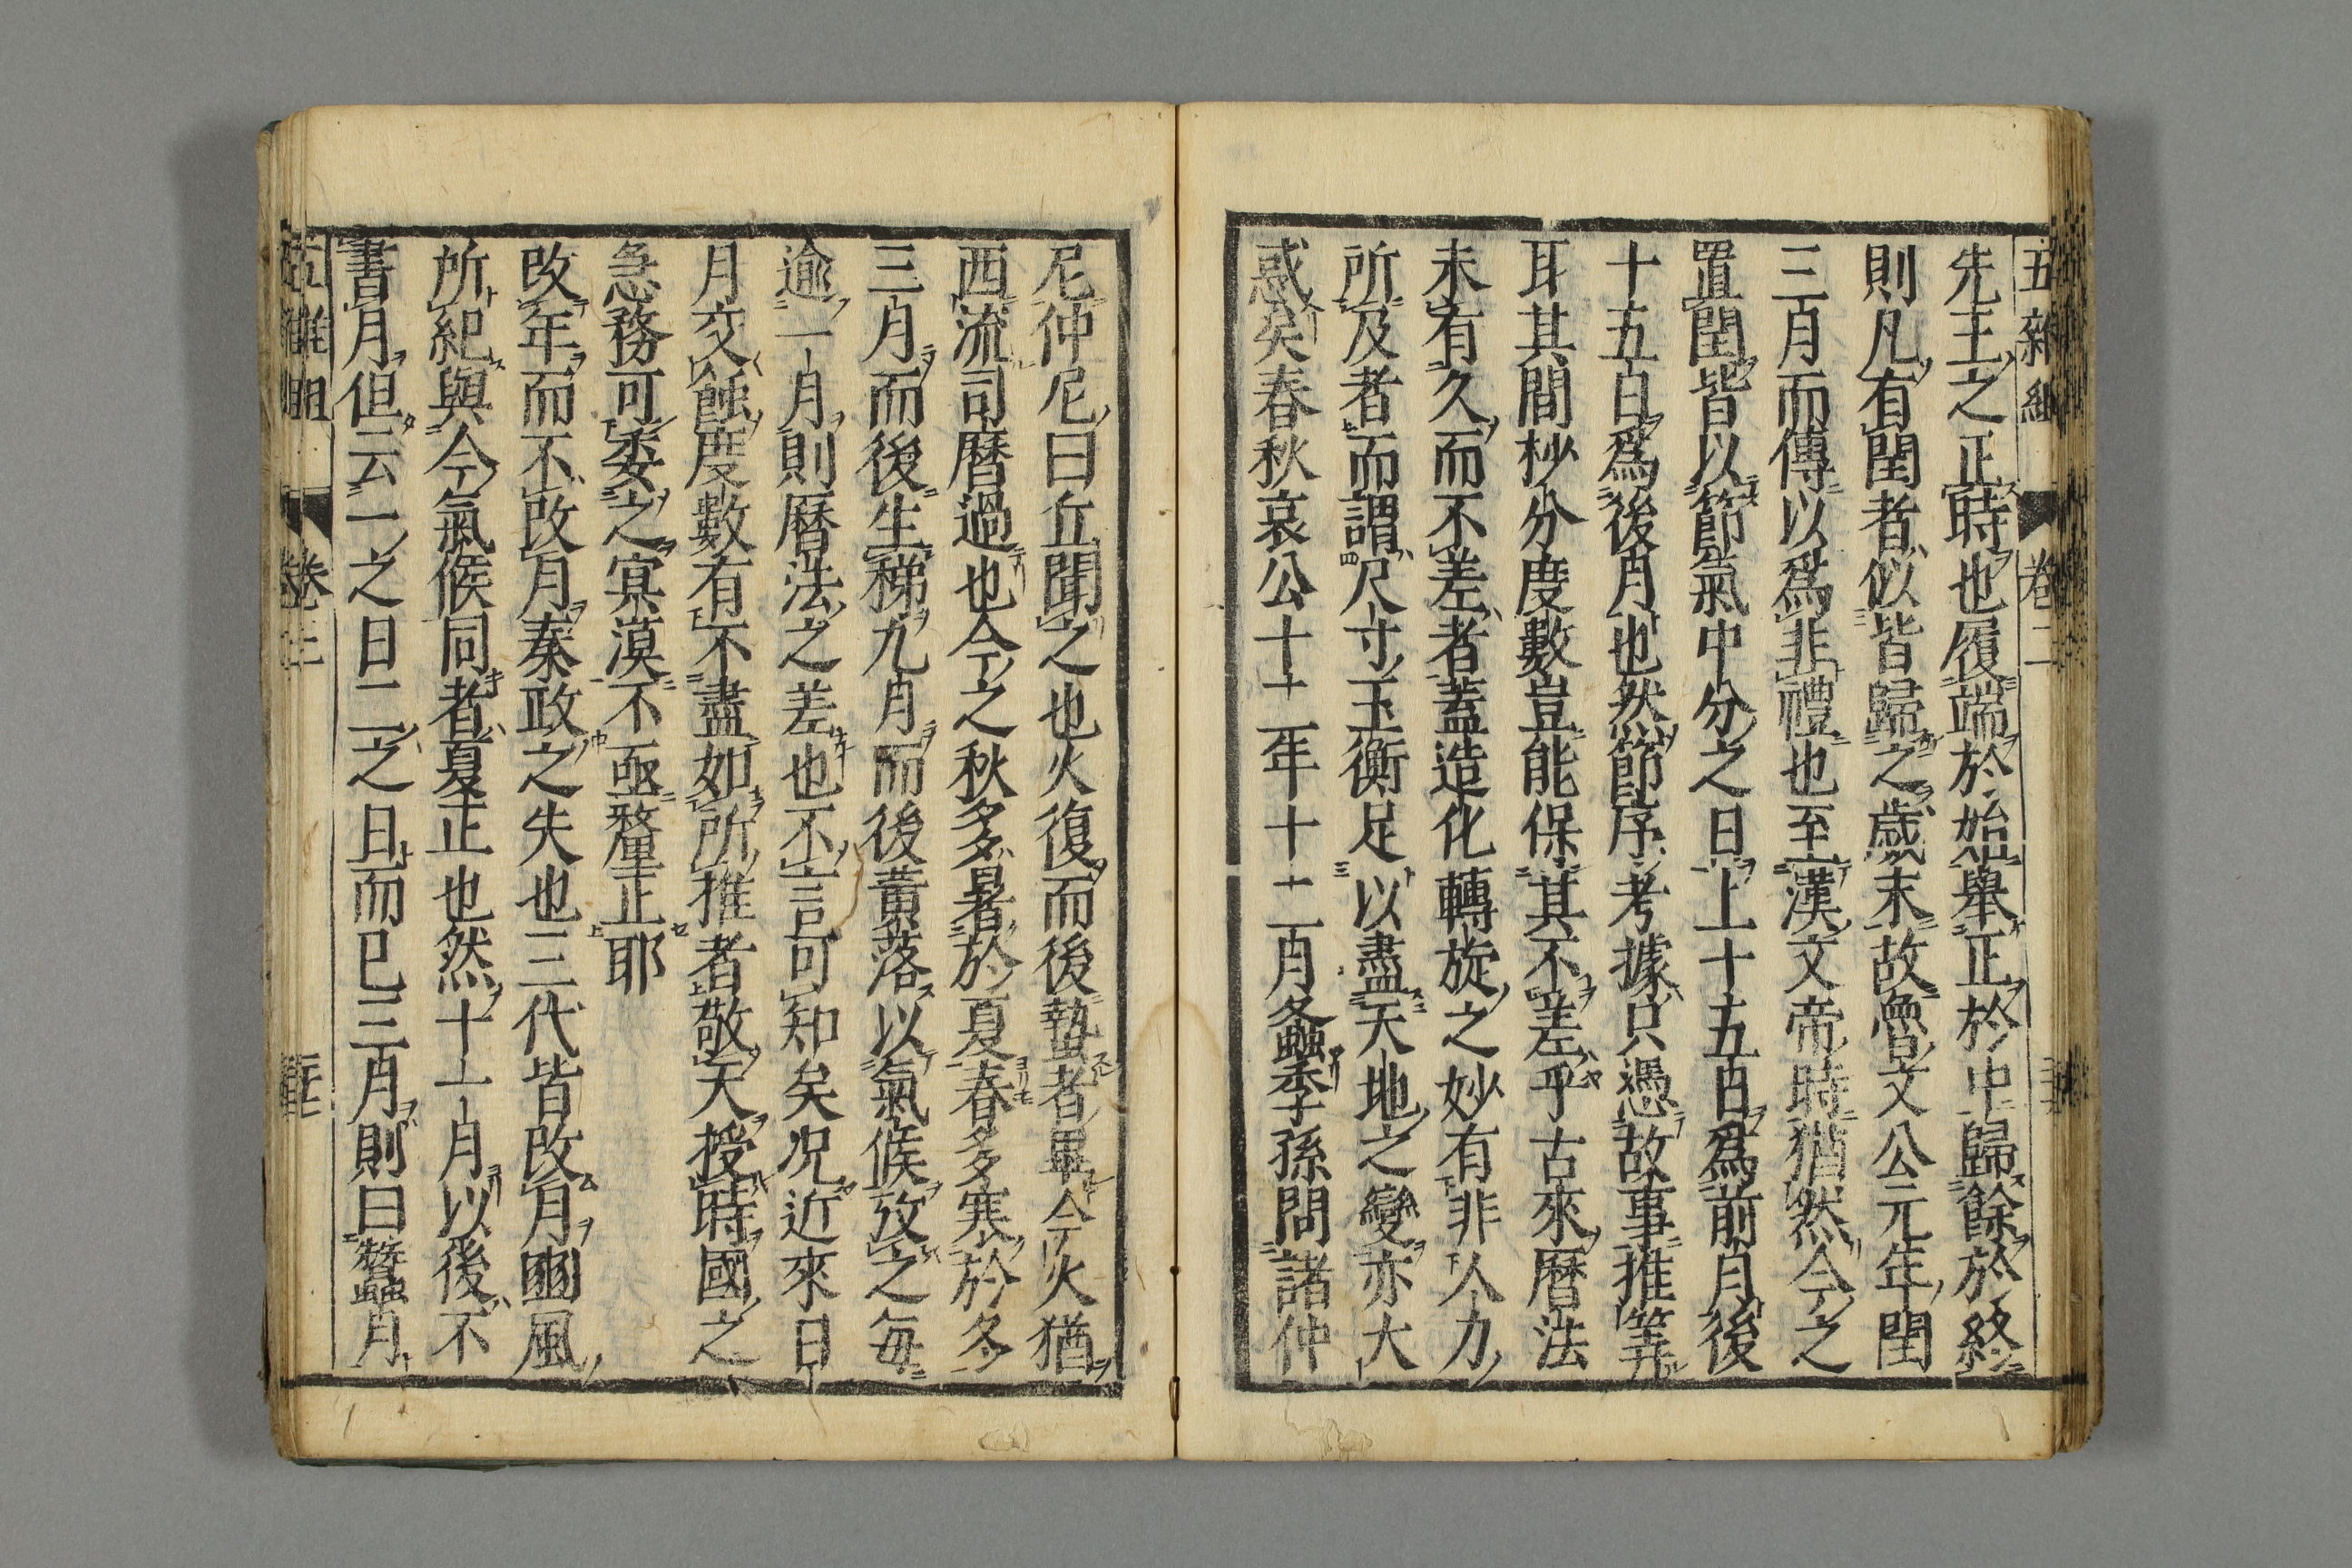 五雜組 卷二
先王之正時也履端於始舉正於中歸餘於終
則凡有閏者似皆歸之歲末故魯文公元年閏
三月而傳以爲非禮也至漢文帝時猶然今之
置閏皆以節氣中分之日上十五日爲前月後
十五日爲後月也然節序考據只憑故事推筭
耳其間杪分度數豈能保其不差乎古來曆法
未有久而不差者蓋造化轉旋之妙有非人力
所及者而謂尺寸玉衡足以盡天地之變亦大
惑矣春秋哀公十二年十二月螽季孫問諸仲
尼仲尼曰丘聞之也火復而後蟄者畢今火猶
西流司曆過也今之秋多暑於夏春多寒於冬
三月而後生稊九月而後黃落以氣候攷之每
逾一月則曆法之差也不言可知矣况近來日
月交蝕度數有不盡如所推者敬天授時國之
急務可委之寞漠不亟釐正耶
改年而不改月秦政之失也三代皆改月豳風
所紀與今氣候同者夏正也然十一月以後不
書月但云一之日二之日而已三月則曰蠶月
五雜組 卷二